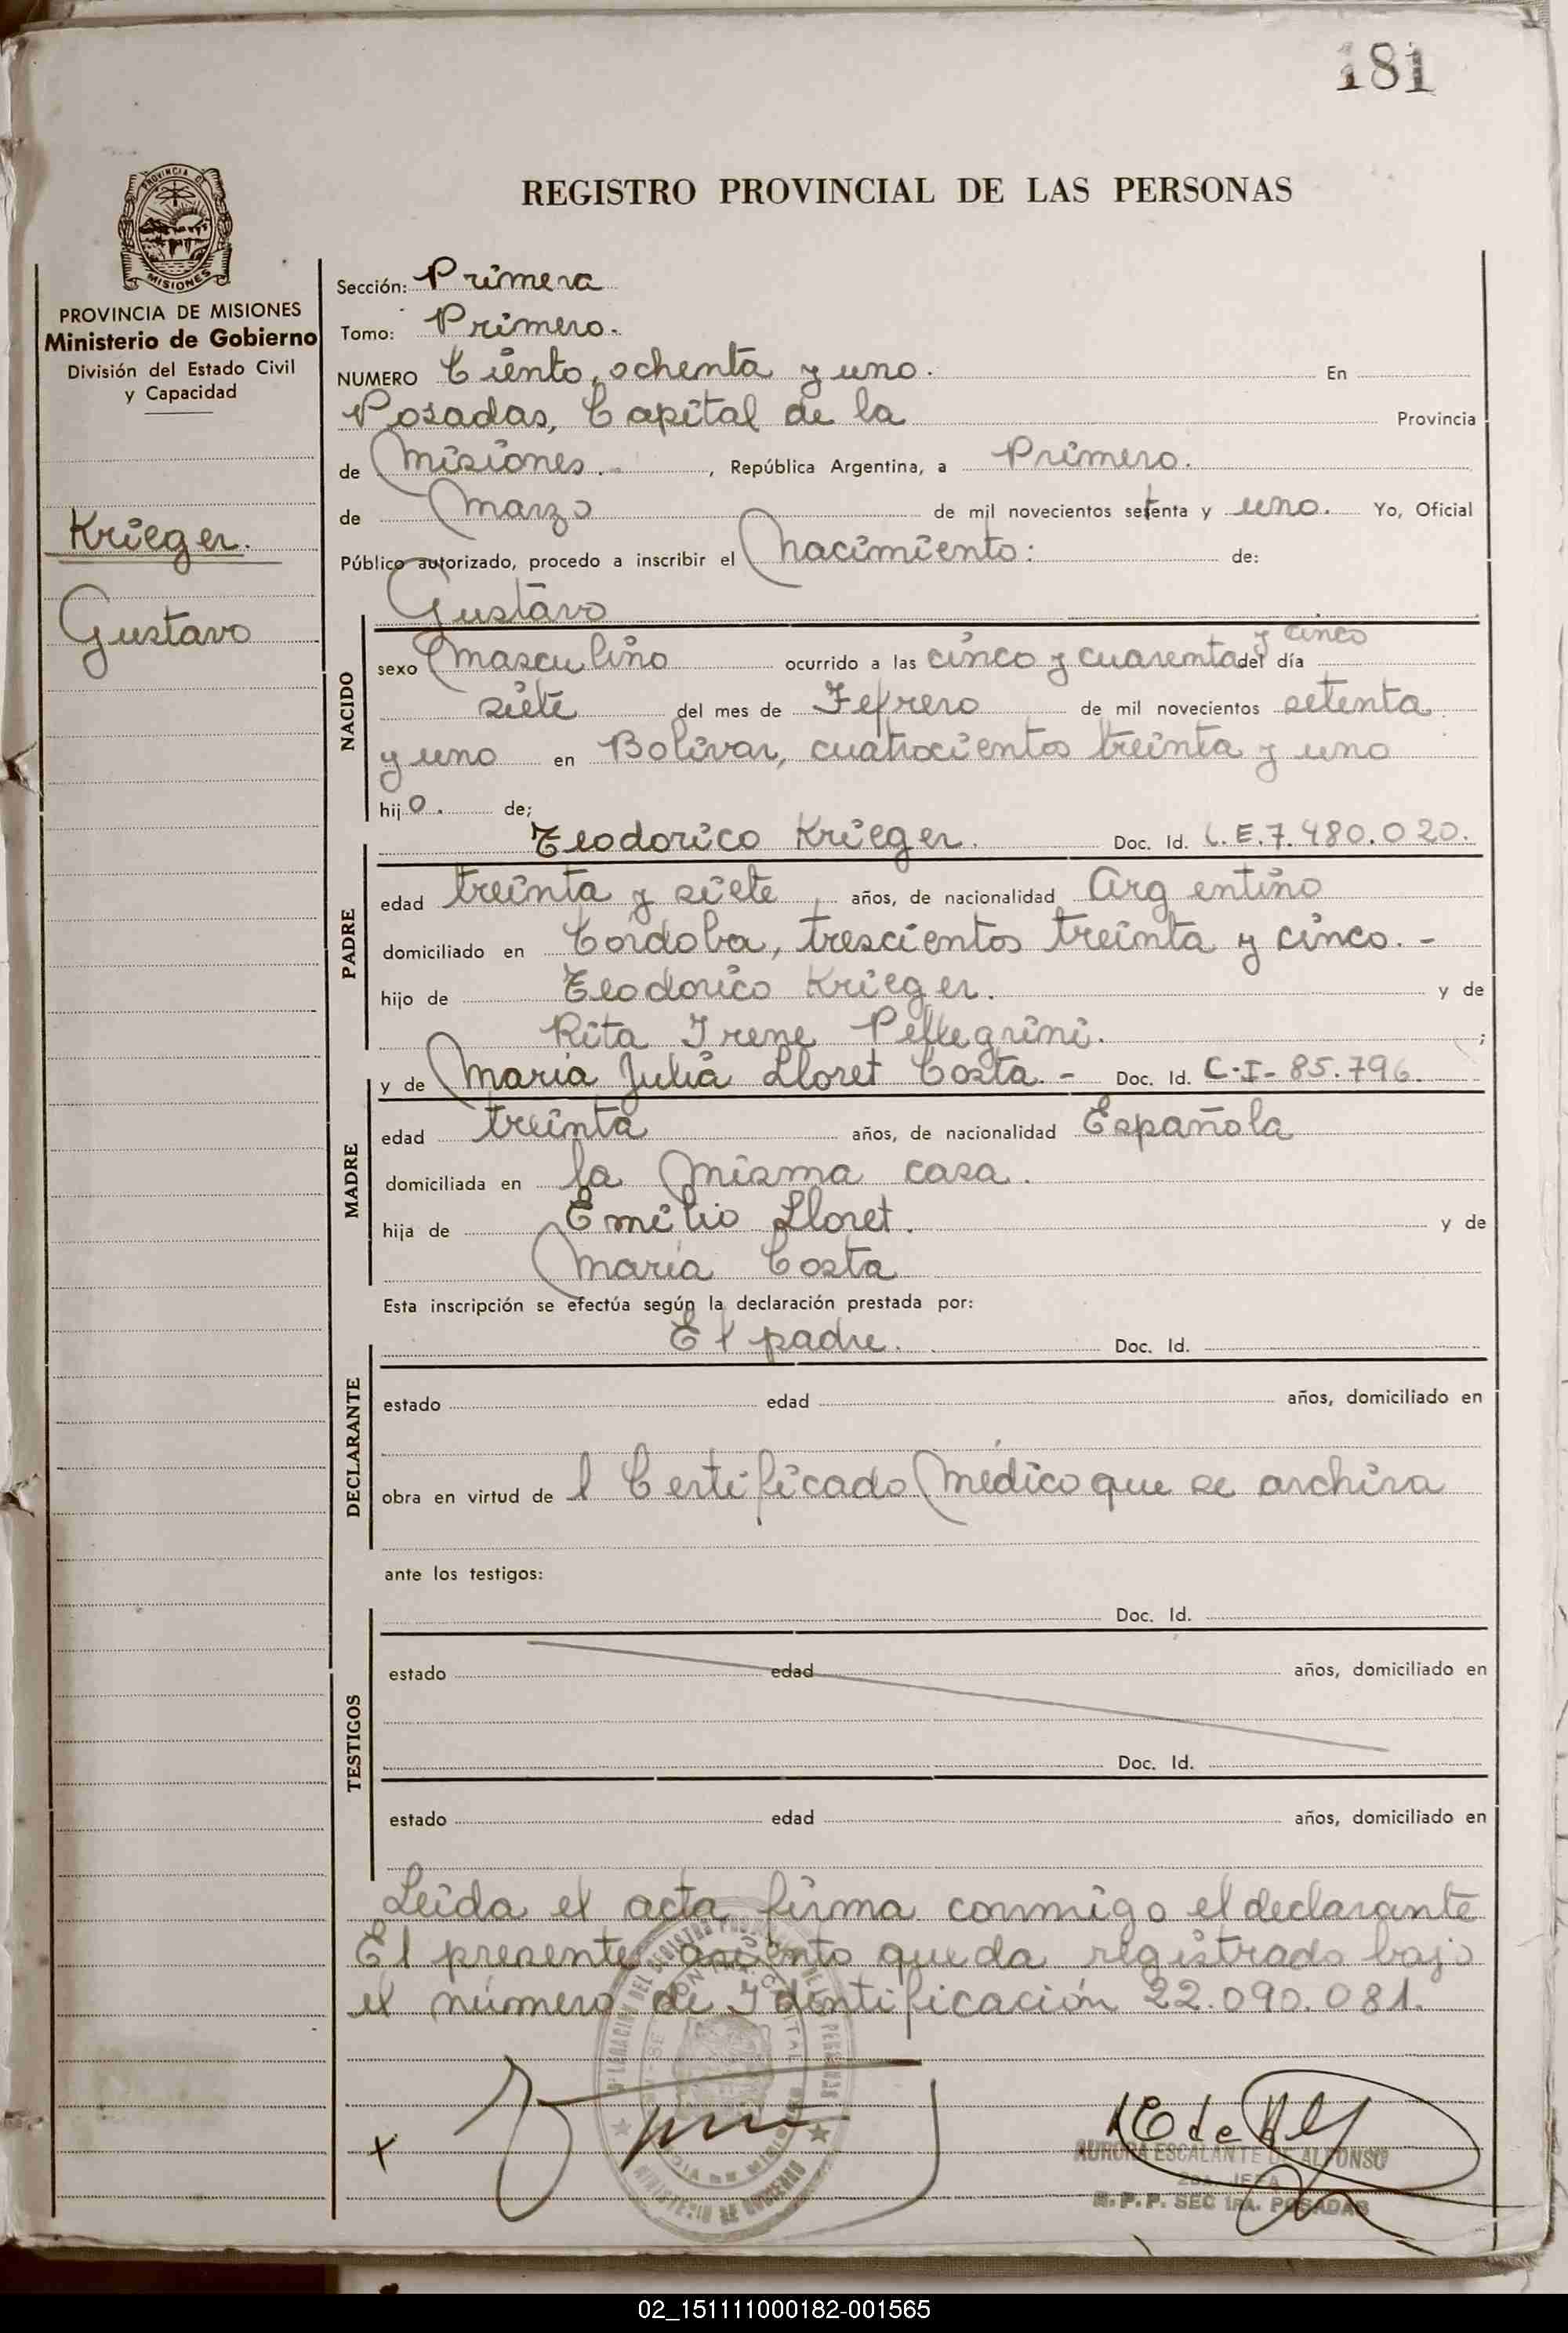 181
PROVINCIA DE
MISIONES
REGISTRO PROVINCIAL DE LAS PERSONAS
PROVINCIA DE MISIONES
Ministerio de Gobierno
División del Estado Civil
y Capacidad
Krieger.
Gustavo
Sección: Primera
Tomo: Primero.
NUMERO Ciento, ochenta y uno. En
Posadas, Capital de la Provincia
de Misiones. , República Argentina, a Primero.
de Marzo de mil novecientos setenta y uno. Yo, Oficial
Público autorizado, procedo a inscribir el Nacimiento: de:
Gustavo
NACIDO
y cinco
sexo Masculino ocurrido a las cinco y cuarenta del día
siete del mes de Fefrero de mil novecientos setenta
y uno en Bolívar, cuatrocientos treinta y uno
hijo. de;
Teodorico Krieger. Doc. Id. L.E.7.480.020.
PADRE
edad treinta y siete años, de nacionalidad Argentino
domiciliado en Córdoba, trescientos treinta y cinco. -
hijo de Teodorico Krieger. y de
Rita Irene Pellegrini. ;
y de María Julia Lloret Costa. - Doc. Id. C-I- 85.796.
MADRE
edad treinta años, de nacionalidad Española
domiciliada en la misma casa.
hija de Emilio Lloret. y de
María Costa
Esta inscripción se efectúa según la declaración prestada por:
El padre. Doc. Id.
DECLARANTE
estado edad años, domiciliado en
obra en virtud de l Certificado Médico que se archiva
ante los testigos:
Doc. Id.
TESTIGOS
estado edad años, domiciliado en
Doc. Id.
estado edad años, domiciliado en
Leída el acta firma conmigo el declarante
El presente asiento queda registrado bajo
el número de Identificación 22.090.081.
AURORA ESCALANTE DE ALFONSO
2da. JEFA
R. P. P. SEC 1RA. POSADAS
MINISTERIO DE GOBIERNO
02_151111000182-001565